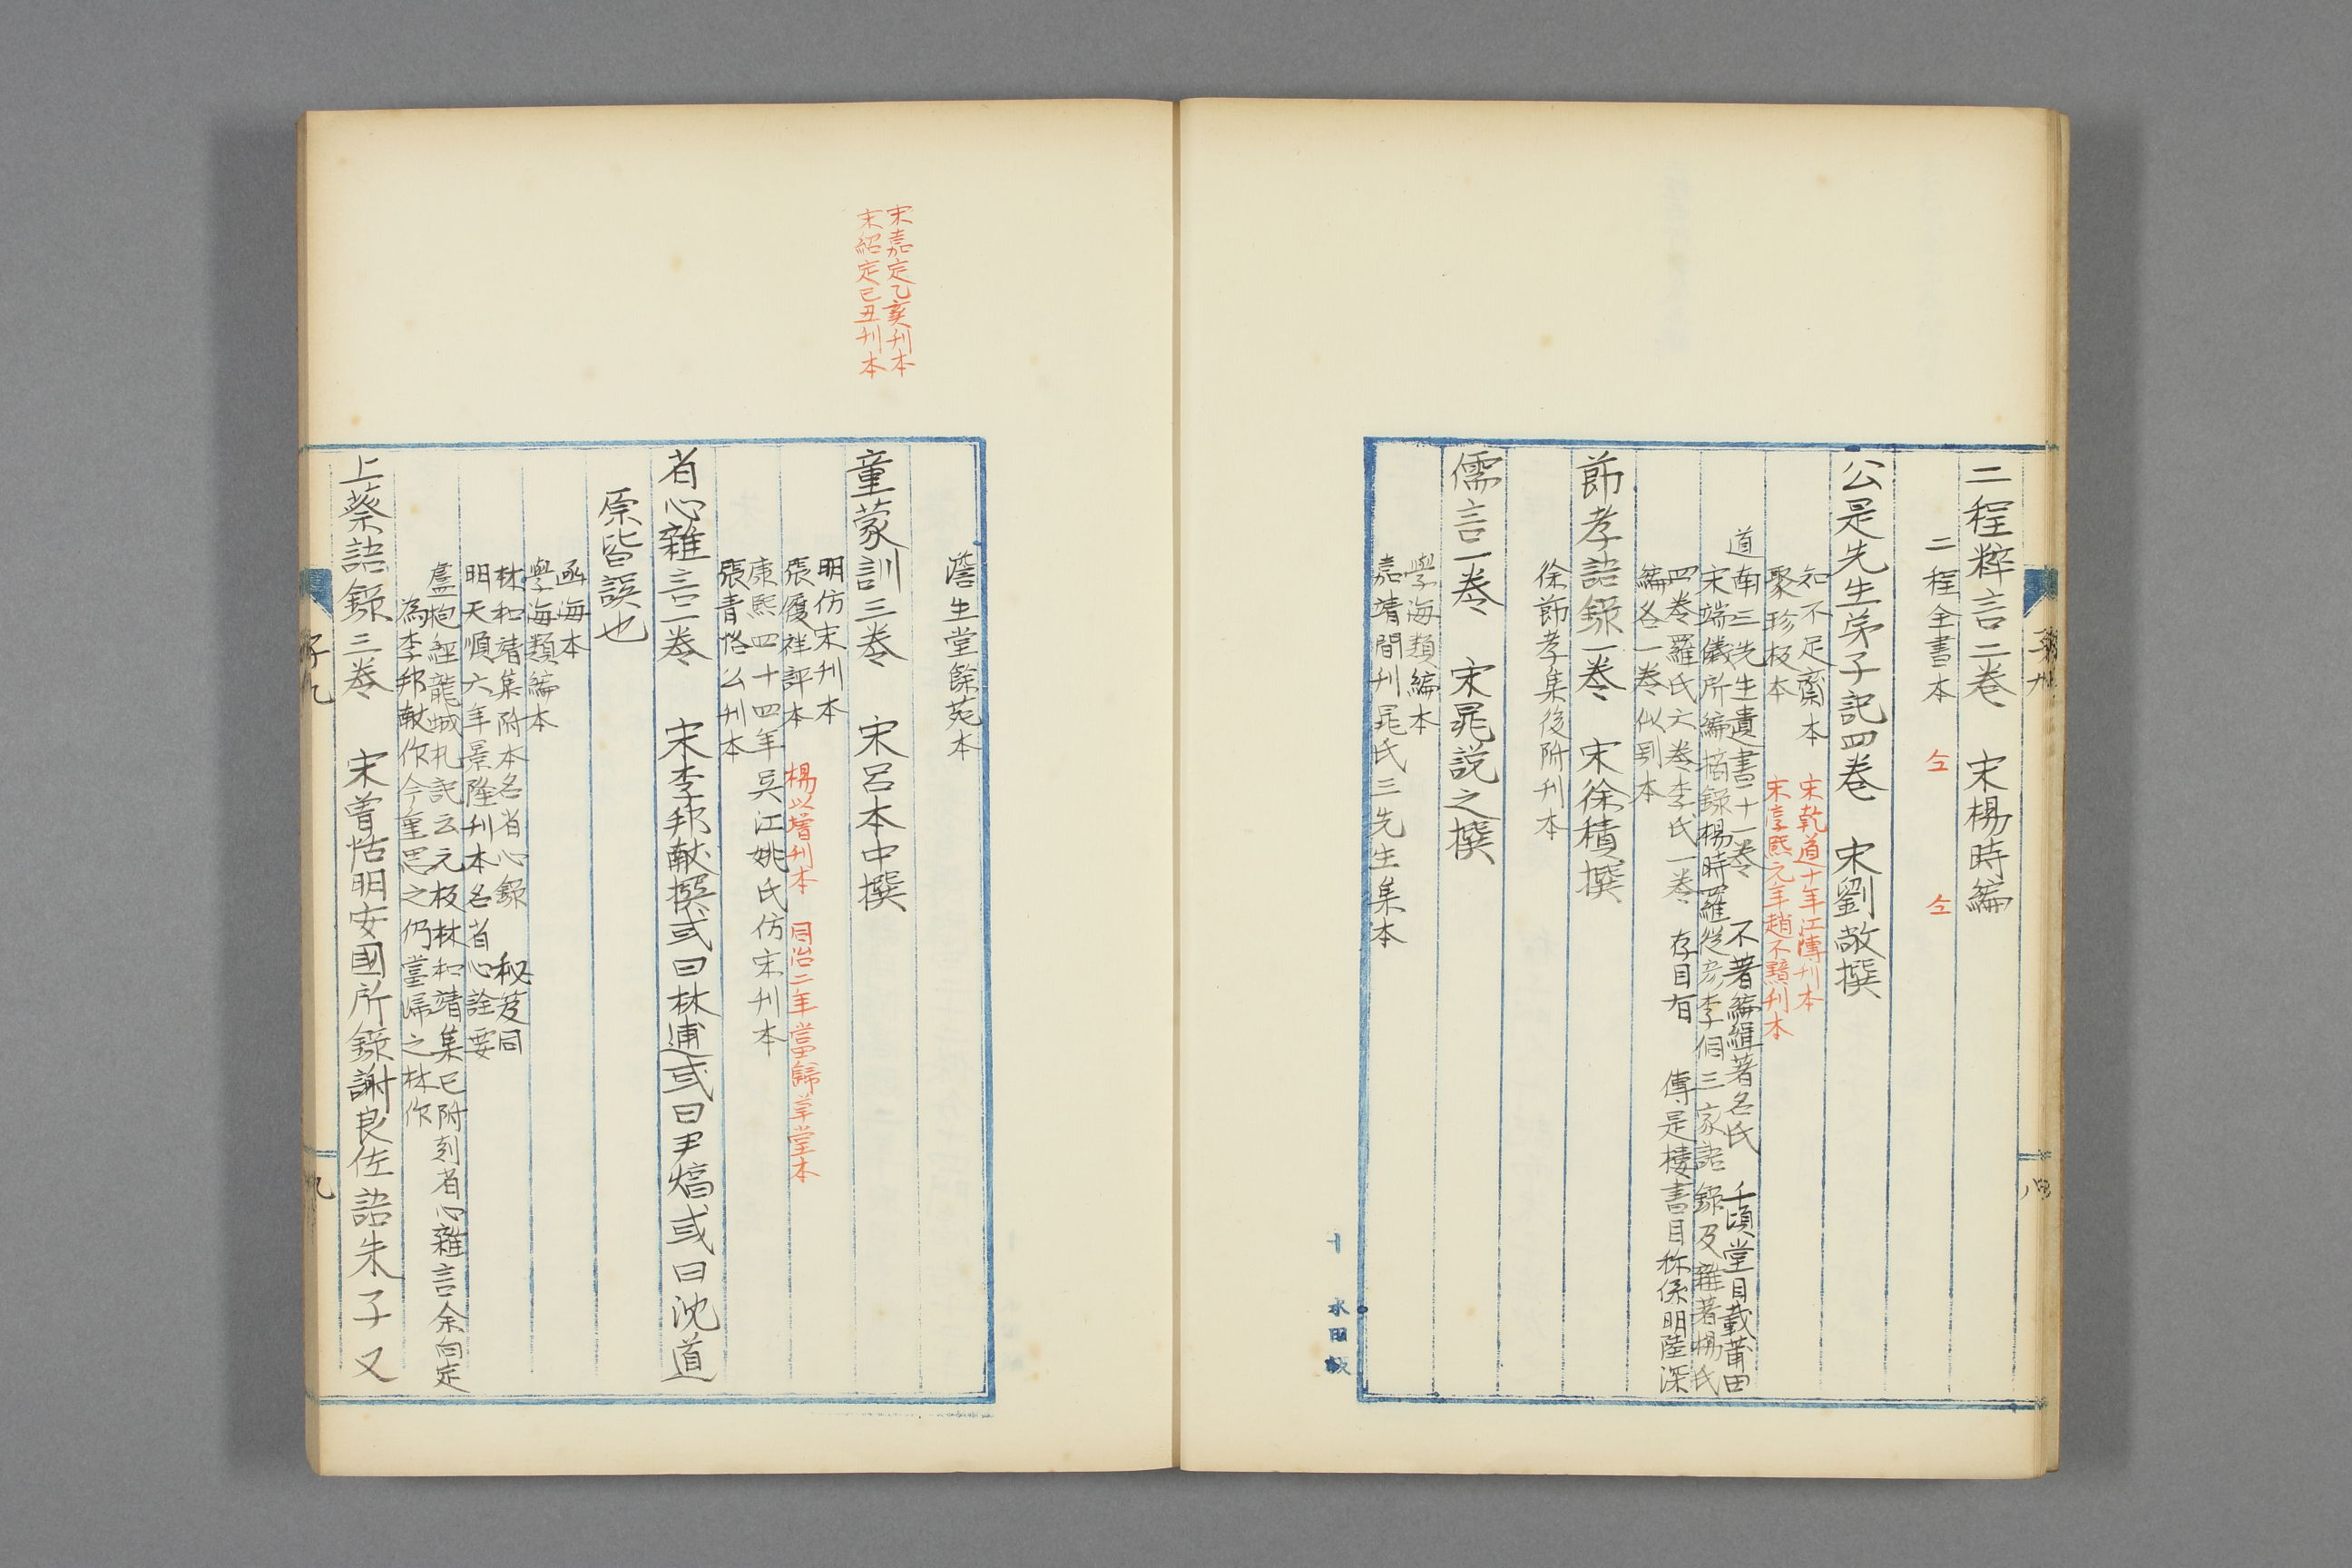 二程粹言二卷　宋楊時編
二程全書本　仝　仝
公是先生弟子記四卷　宋劉敞撰
知不足齋本　宋乾道十年江溥刊本
聚珍板本　宋淳熙元年趙不黯刊本
道南三先生遺書十一卷　不著編緝著名氏　千頃堂目載莆田
宋端儀所編摘錄楊時羅從彥李侗三家語錄及雜著楊氏
四卷羅氏六卷李氏一卷　存目有　傳是樓書目称係明陸深
編各一卷似別本
節孝語錄一卷　宋徐積撰
徐節孝集後附刊本
儒言一卷　宋晁説之撰
學海類編本
嘉靖間刊晁氏三先生集本
澹生堂餘苑本
宋嘉定乙亥刊本
宋紹定己丑刊本
童蒙訓三卷　宋呂本中撰
明仿宋刊本
張履祥評本　楊以增刊本　同治二年當歸草堂本
康熙四十四年吳江姚氏仿宋刊本
張青恪公刊本
省心雜言一卷　宋李邦獻撰或曰林逋或曰尹焞或曰沈道
原皆誤也
函海本
學海類編本
林和靖集附本名省心錄　秘笈同
明天順六年景隆刊本名省心詮要
盧抱經龍城札記云元板林和靖集已附刻省心雜言余向定
為李邦献作今重思之仍當帰之林作
上蔡語錄三卷　宋曾恬胡安國所錄謝良佐語朱子又
子九
九